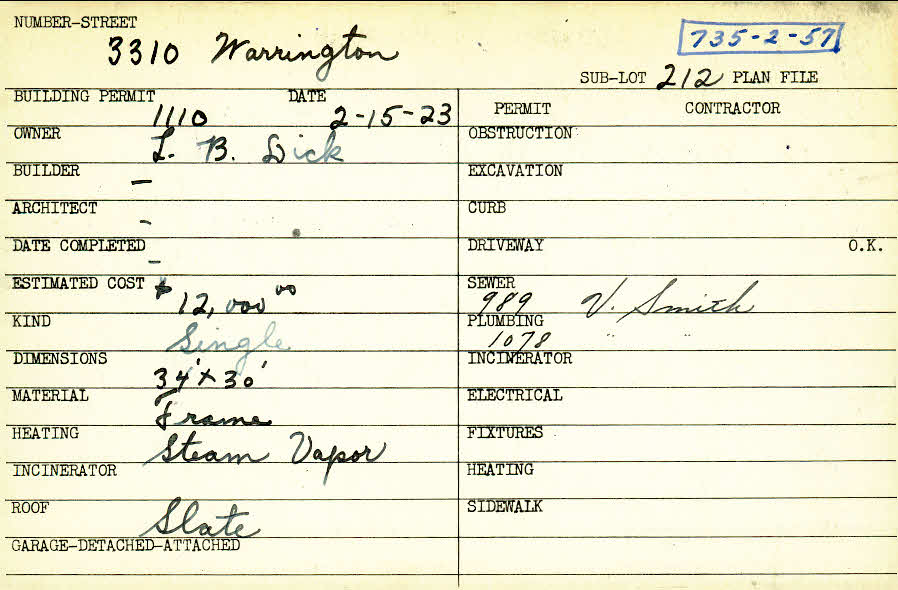 NUMBER-STREET
3310 Warrington
735-2-57
SUB-LOT 212 PLAN FILE
BUILDING PERMIT DATE
1110 2-15-23
PERMIT CONTRACTOR
OWNER
L. B. Dick
OBSTRUCTION
BUILDER
—
EXCAVATION
ARCHITECT
-
CURB
DATE COMPLETED
—
DRIVEWAY O.K.
ESTIMATED COST $12,000 00
SEWER
989 V. Smith
KIND
Single
PLUMBING
1078 " "
DIMENSIONS
34' x 30'
INCINERATOR
MATERIAL
Frame
ELECTRICAL
HEATING
Steam Vapor
FIXTURES
INCINERATOR
HEATING
ROOF
Slate
SIDEWALK
GARAGE-DETACHED-ATTACHED